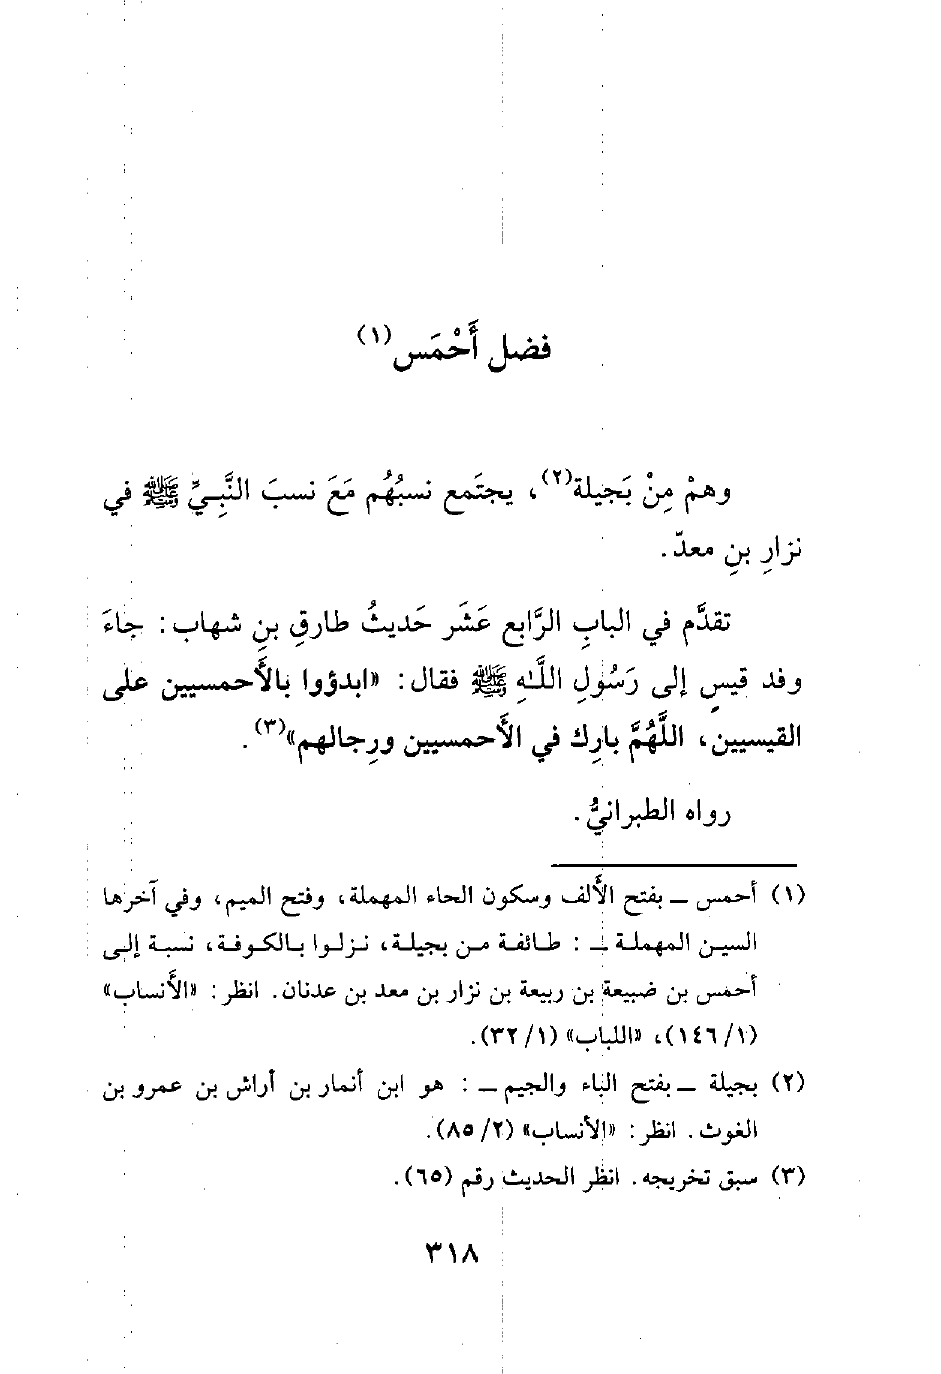 فضل أَحْمَس(١)
وهمْ مِنْ بَجيلة(٢)، يجتَمع نسبُهُم مَعَ نسبَ النَّبِيِّ ﷺ في
نزارِ بنِ معدّ.
تقدَّم في البابِ الرَّابع عَشَر حَديثُ طارقِ بنِ شهاب: جاءَ
وفد قيسٍ إلى رَسُولِ اللَّهِ ﷺ فقال: «ابدؤوا بالأَحمسيين على
القيسيين، اللَّهُمَّ بارِك في الأَحمسيين ورِجالهم»(٣).
رواه الطبرانيُّ.
(١) أحمس ــ بفتح الأَلف وسكون الحاء المهملة، وفتح الميم، وفي آخرها
السين المهملة ــ: طائفة من بجيلة، نزلوا بالكوفة، نسبة إلى
أحمس بن ضبيعة بن ربيعة بن نزار بن معد بن عدنان. انظر: «الأَنساب»
(١/١٤٦)، «اللباب» (١/٣٢).
(٢) بجيلة ــ بفتح الباء والجيم ــ: هو ابن أنمار بن أراش بن عمرو بن
الغوث. انظر: «الأنساب» (٢/٨٥).
(٣) سبق تخريجه. انظر الحديث رقم (٦٥).
٣١٨